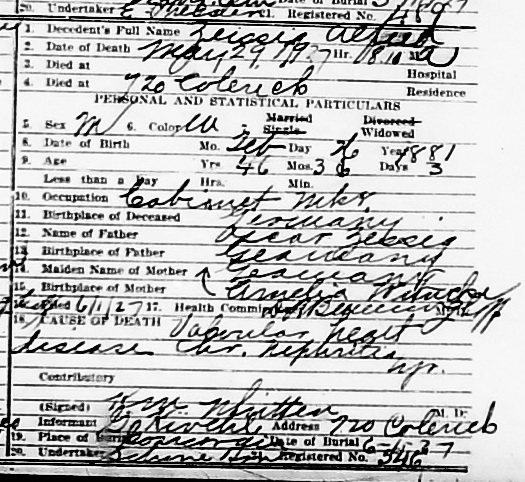 20. Undertaker Cl. Registered No. 489
1. Decedent's Full Name Zeissig Alfred
2. Date of Death May 29, 1927 Hr. M. a
3. Died at Hospital
4. Died at 720 Colerick Residence
PERSONAL AND STATISTICAL PARTICULARS
5. Sex M 6. Color W Married Single Divorced Widowed
8. Date of Birth Mo. Feb Day 26 Year 1881
9. Age Yrs. 46 Mos. 3 Days 3
Less than a Day Hrs. Min.
10. Occupation Cabinet Mkr.
11. Birthplace of Deceased Germany
12. Name of Father Oscar Zeissig
13. Birthplace of Father Germany
14. Maiden Name of Mother Germany
15. Birthplace of Mother Amelia
16. Filed 6/1/27 17. Health Commissioner
18. CAUSE OF DEATH Valvular heart
disease Chr. Nephritis
Contributory
(Signed) H. M. Whitten M. D.
Informant Address 720 Colerick
19. Place of Burial Concordia Date of Burial 6-1-27
20. Undertaker Registered No. 546